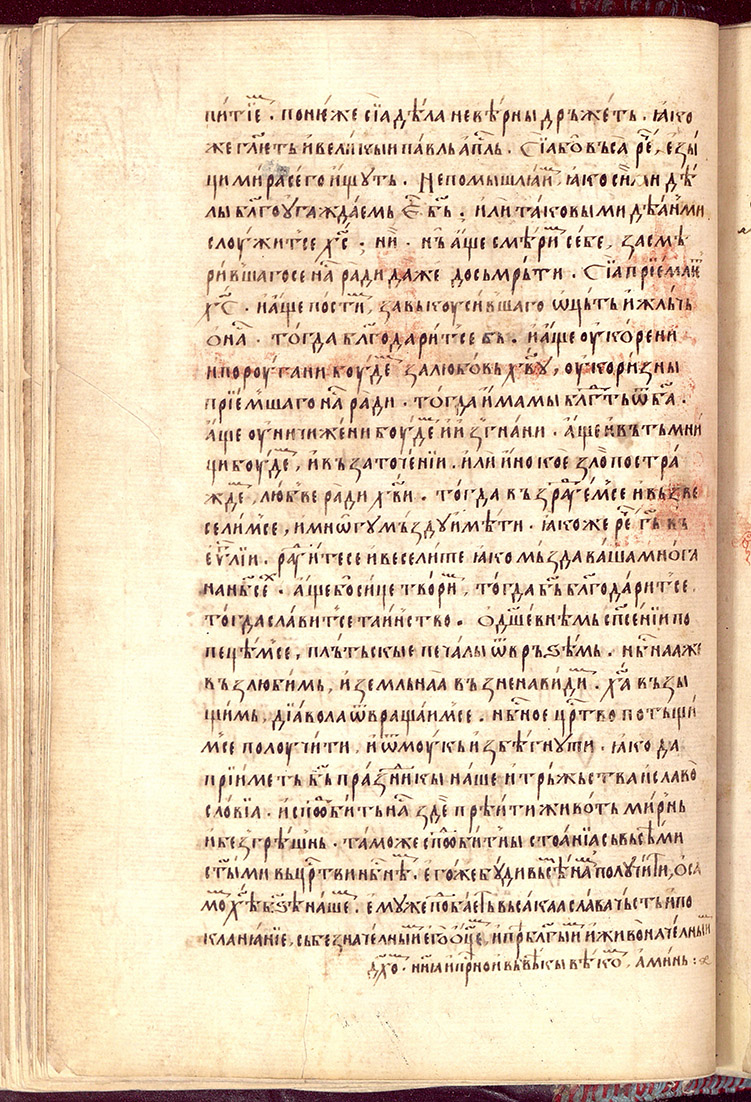 питїе . понюже сїа дѣла невѣрны дръжеть . ꙗко
же гл҃ть и великыи павль ап҃ль . Сїа бѡ въса рⷱ҇е , езы
ци мира сего ищуть . Непомышлꙗи , ꙗко сими дѣ
лы бл҃гоугаждаемь б҃в . или таковыми дѣанми
слоужитсе х҃с . ни . нъ аще смѣри себе , засмѣ
рившагосе на ради даже до съмръти . Сїа прїемаи
х҃с . и аще пости , за въкоусившаго ѡцьть и жлъчь
она . тогда бл҃годаритсе б҃ь . и аще оукорени
и пороугани боуде за любовь хв҃у , оукоризны
прїемшаго на ради . тогда имамы бл҃гть ѿ б҃а .
аще оуничижени боуде и изгнани . аще и вътьмни
ци боуде , и въ заточенїи . или ино кое зло постра
жде , любве ради хв҃и . тогда възрауемсе и възве
селимсе , и мнѡгу мъзду имѣти . ꙗкоже рⷱ҇е г҃ь въ
еѵ҃лїи . рауитесе и веселите ꙗко мъзда ваша многа
на нб҃се . аще бо сице твори , тогда б҃ь бл҃годаритсе ,
тогда славитсе таинство . о дш҃евнѣмь сп҃сенїи по
пецѣмсе , плътьскые печалы ѿвръзѣмь . нб҃наа же
възлюбимь , и земльнаа възненавиди . х҃а възы
щимь , дїавола ѿвращаимсе . нб҃ное цр҃тво потьщи
мсе полоучити , и ѿ моукы избѣгнути . ꙗко да
прїиметь б҃ь празⷣникы наше и тръжьства и славо
словїа . и спо҃битъ на зде прѣити животь мирнь
и безгрѣшнь . таможе спо҃битны стоанїа съ въсѣми
ст҃ыми въ цр҃тви нб҃нѣ . егоже буди въсѣ на получити , о са
мо х҃ѣ б҃зѣ наше . емуже по҃баетъ въсакаа слава чьсть и по
кланꙗнїе , съ безначелныи его ѡ҃це , и прѣбл҃гыи и животначелныи
дх҃о . нн҃ꙗ и пр҃но и въ вѣкы вѣко . аминь :